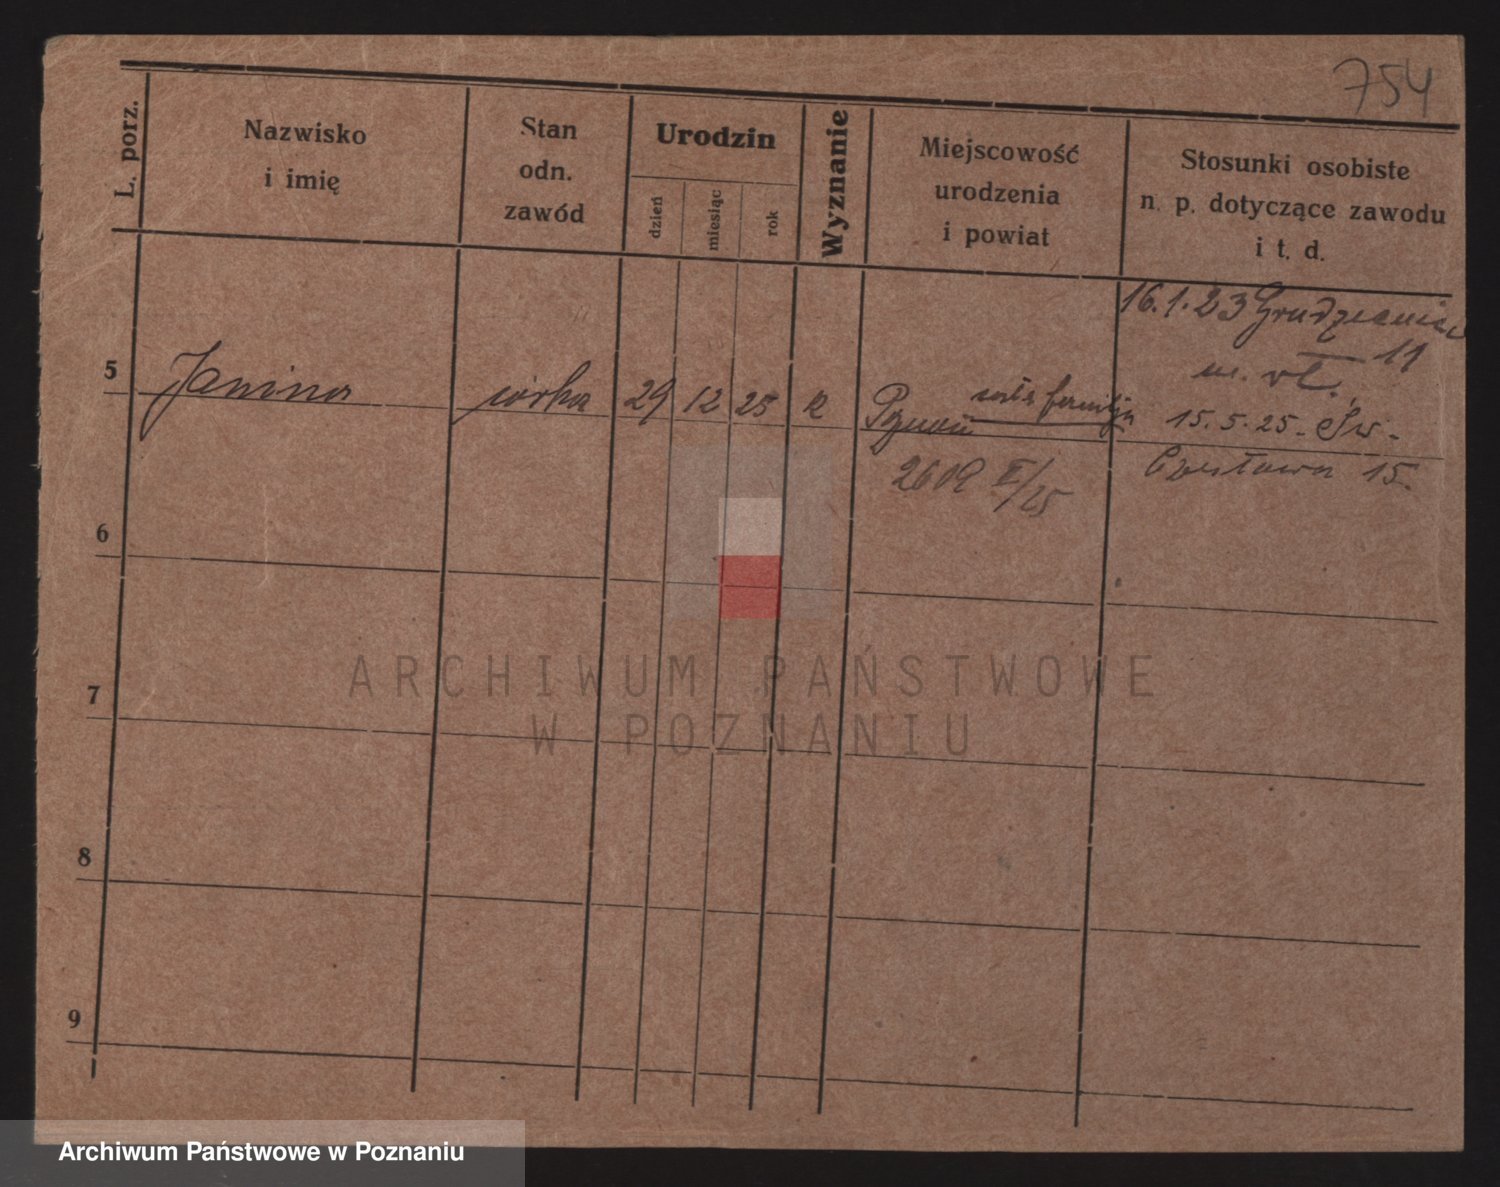 754
L. porz.
Nazwisko
i imię
Stan
odn.
zawód
Urodzin
dzień
miesiąc
rok
Wyznanie
Miejscowość
urodzenia
i powiat
Stosunki osobiste
n. p. dotyczące zawodu
i t. d.
16.1.23 Grudzieniec
11
m. vł.
5 Janina córka 29 12 25 R Poznań familja 15.5.25 - Św.
Czesława 15.
2609 II/25
6
7
8
9
ARCHIWUM PAŃSTWOWE
W POZNANIU
Archiwum Państwowe w Poznaniu